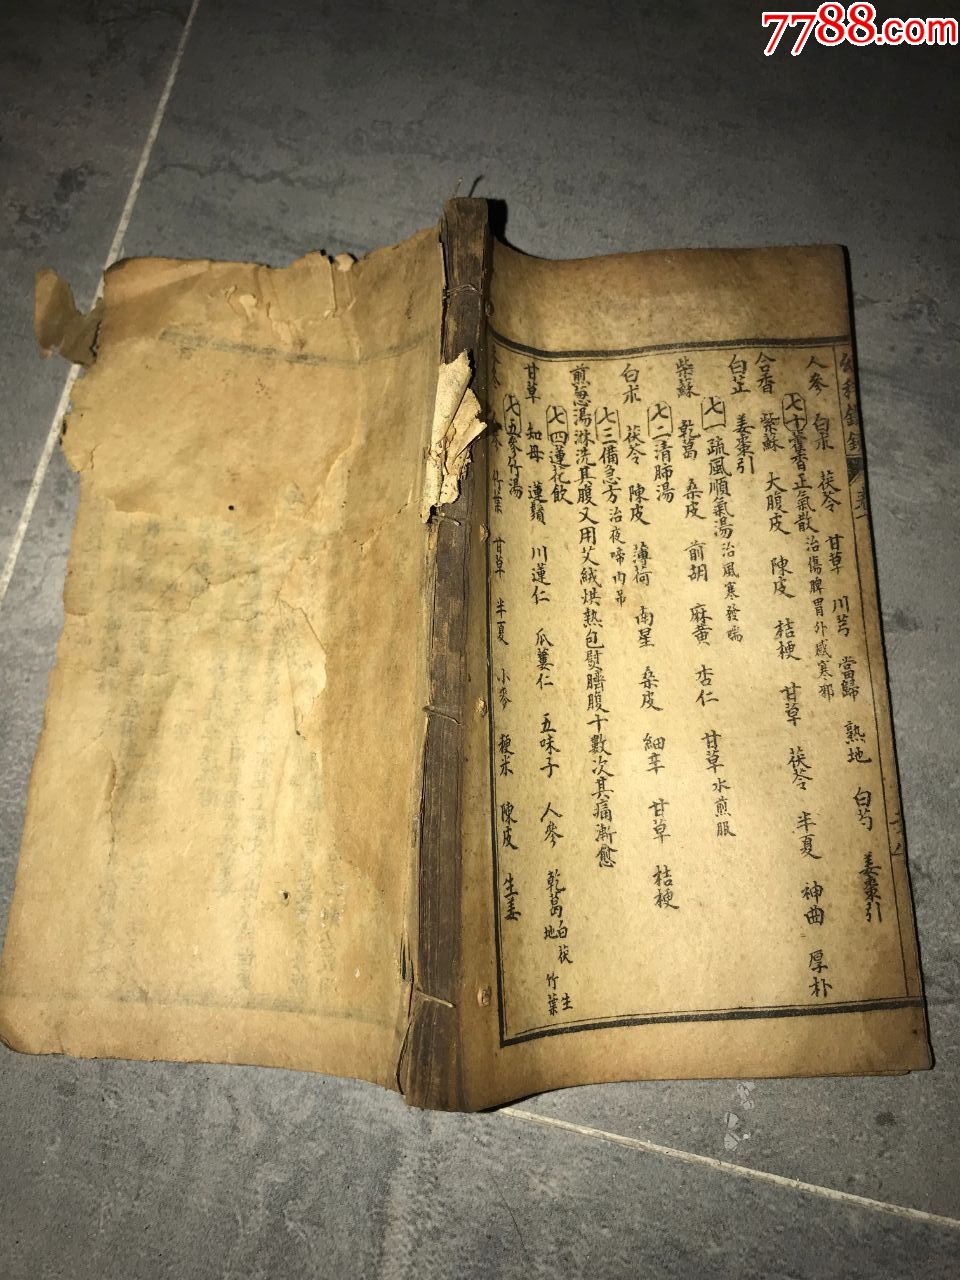 7788.com
人參 白朮 茯苓 甘草 川芎 當歸 熟地 白芍 姜棗引
七十藿香正氣散 治傷脾胃外感寒邪
合香 紫蘇 大腹皮 陳皮 桔梗 甘草 茯苓 半夏 神曲 厚朴
白芷 姜棗引
七一疏風順氣湯 治風寒發喘
柴蘇 乾葛 桑皮 前胡 麻黃 杏仁 甘草 水煎服
七二清肺湯
白朮 茯苓 陳皮 薄荷 南星 桑皮 細辛 甘草 桔梗
七三備急方 治夜啼內吊
煎蔥湯淋洗其腹又用艾絨烘熱包熨臍腹十數次其痛漸愈
七四蓮花飲
甘草 知母 蓮鬚 川蓮仁 瓜蔞仁 五味子 人參 乾葛 白茯 生地 竹葉
七五參竹湯
竹葉 甘草 半夏 小參 梗米 陳皮 生姜